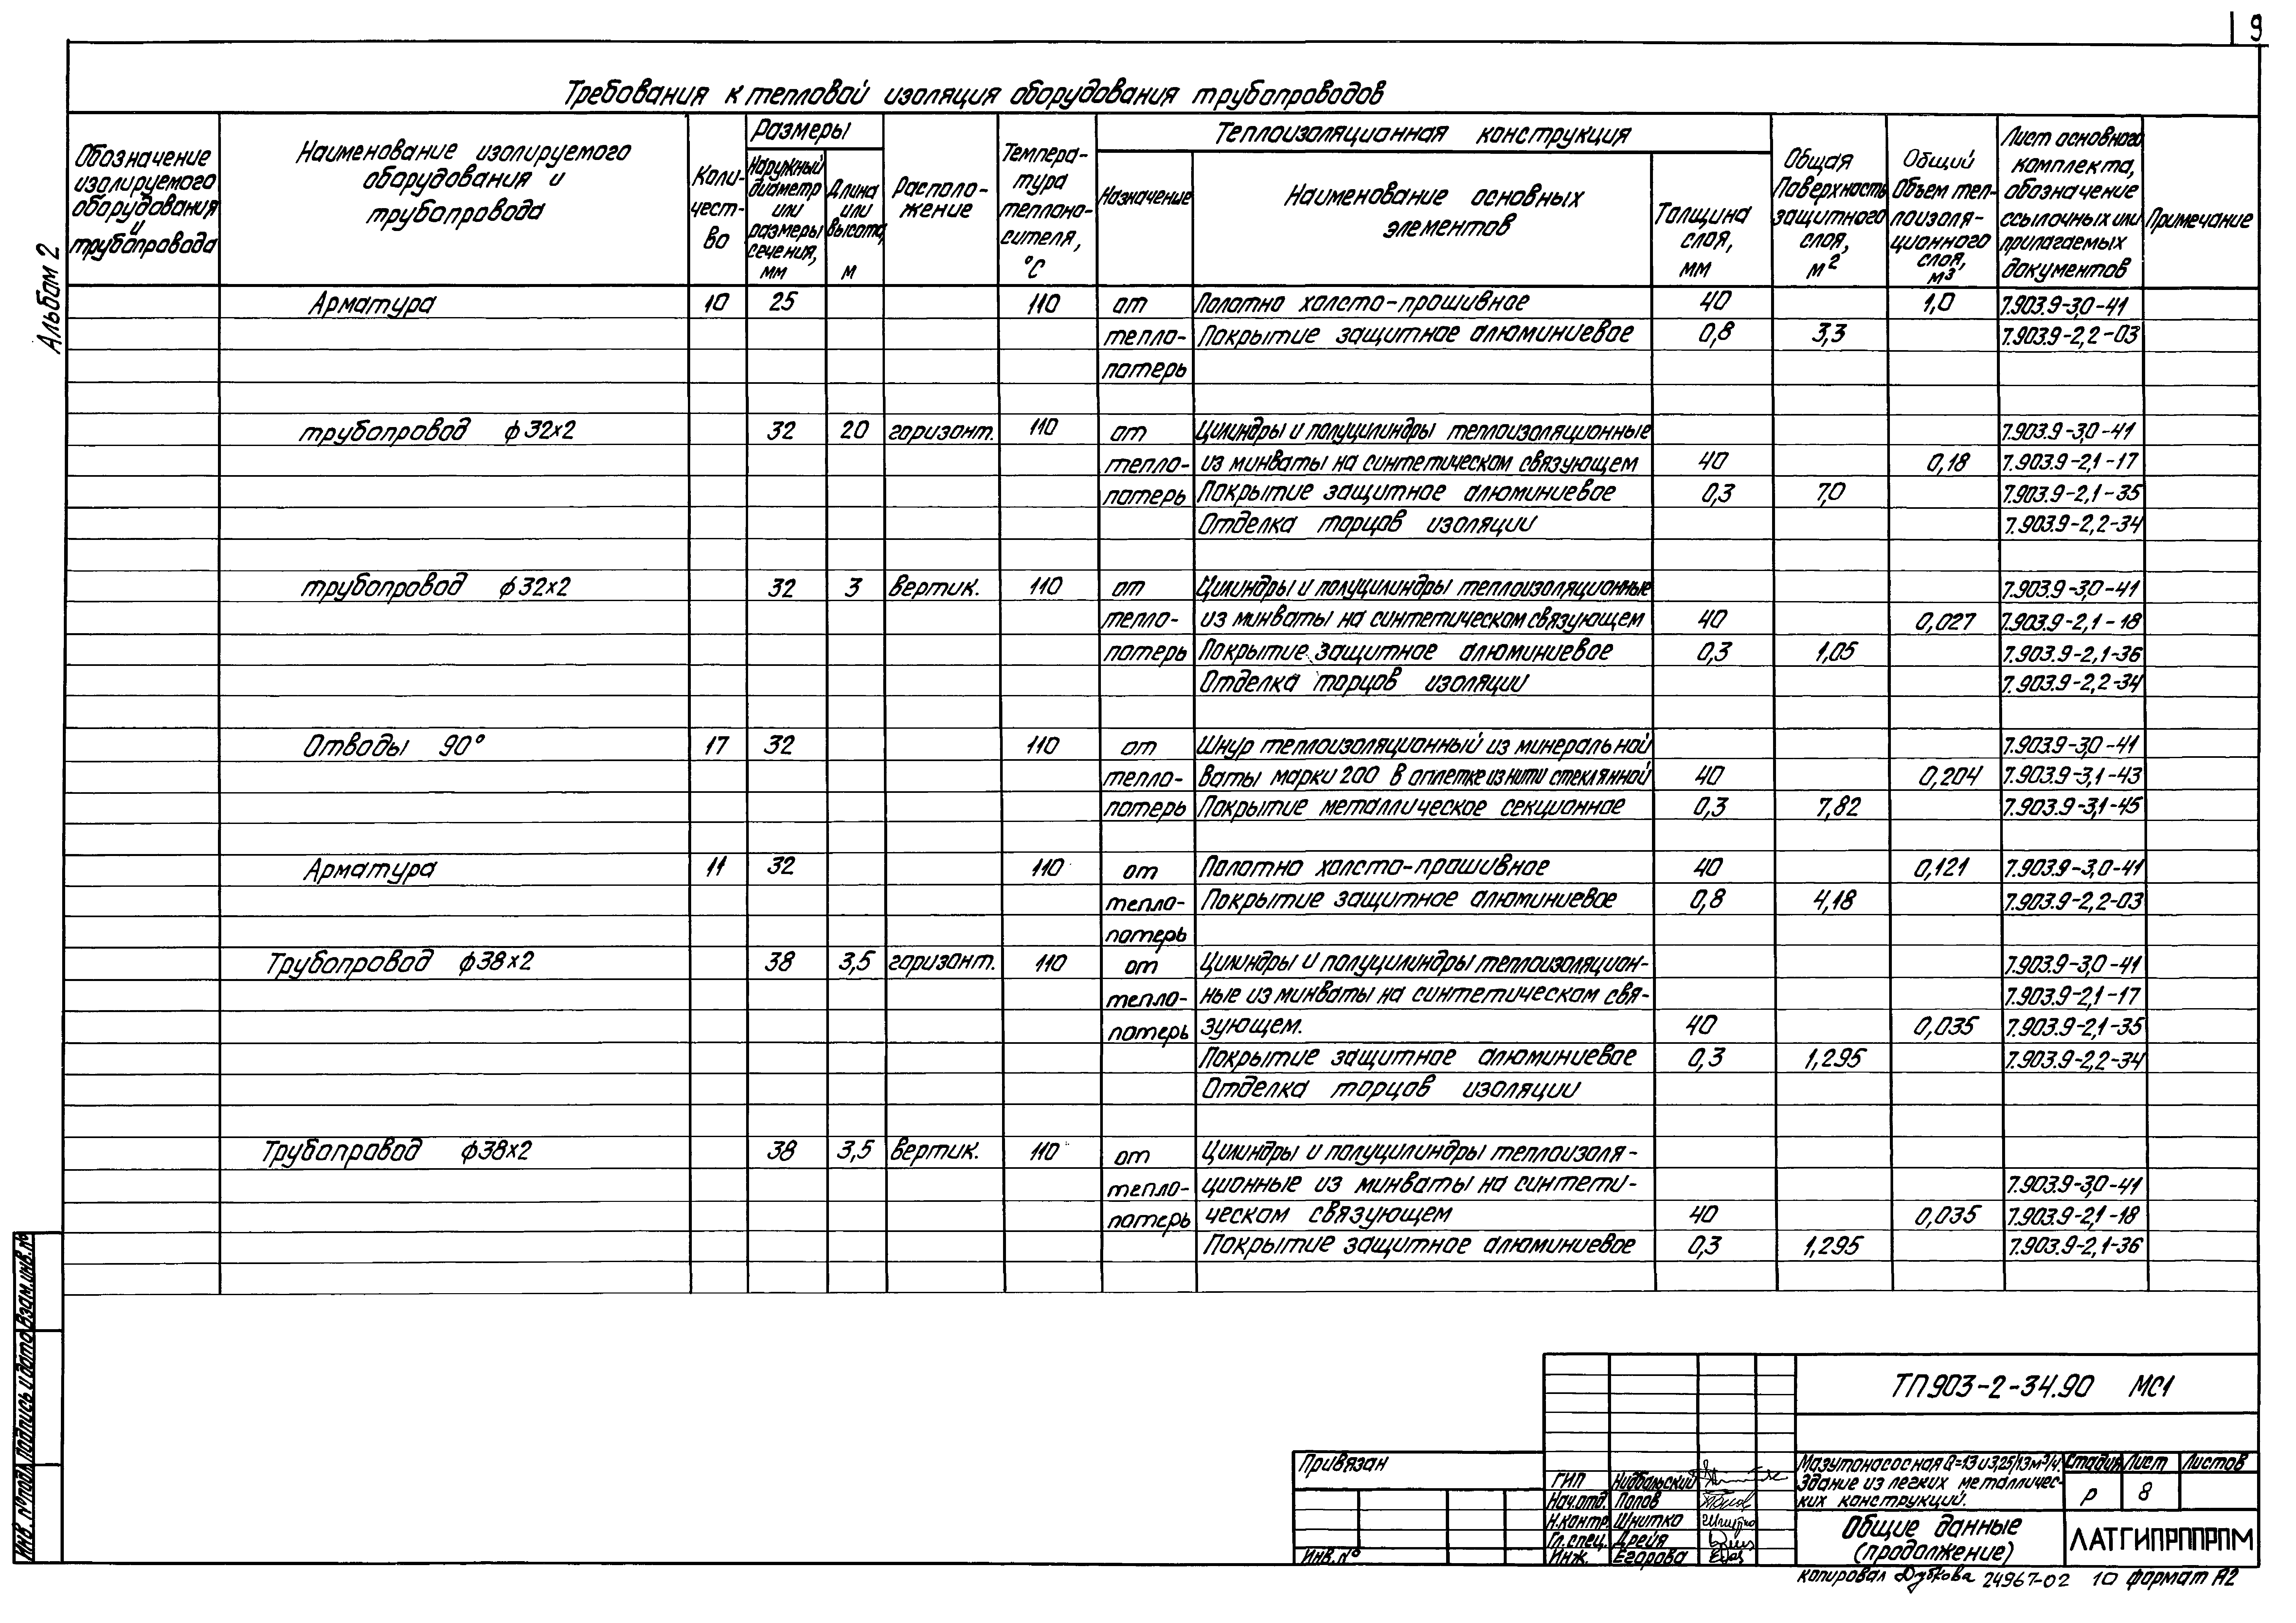 9
Альбом 2
Требования к тепловой изоляция оборудования трубопроводов
Обозначение изолируемого оборудования и трубопровода
Наименование изолируемого оборудования и трубопровода
Коли-чест-во
Размеры
Наружный диаметр или размеры сечения, мм
Длина или высота, м
Располо-жение
Темпера-тура теплоно-сителя, °С
Теплоизоляционная конструкция
Назначение
Наименование основных элементов
Толщина слоя, мм
Общая Поверхность защитного слоя, м2
Общий Объем теп-лоизоля-ционного слоя, м3
Лист основного комплекта, обозначение ссылочных или прилагаемых документов
Примечание
Арматура 10 25 110 от Полотно холсто-прошивное 40 1,0 7.903.9-3,0-41
тепло- Покрытие защитное алюминиевое 0,8 3,3 7.903.9-2,2-03
потерь
трубопровод ф32х2 32 20 горизонт. 110 от Цилиндры и полуцилиндры теплоизоляционные 7.903.9-3,0-41
тепло- из минваты на синтетическом связующем 40 0,18 7.903.9-2,1-17
потерь Покрытие защитное алюминиевое 0,3 7,0 7.903.9-2,1-35
Отделка торцов изоляции 7.903.9-2,2-34
трубопровод ф32х2 32 3 вертик. 110 от Цилиндры и полуцилиндры теплоизоляционные 7.903.9-3,0-41
тепло- из минваты на синтетическом связующем 40 0,027 7.903.9-2,1-18
потерь Покрытие защитное алюминиевое 0,3 1,05 7.903.9-2,1-36
Отделка торцов изоляции 7.903.9-2,2-34
Отводы 90° 17 32 110 от Шнур теплоизоляционный из минеральной 7.903.9-3,0-41
тепло- ваты марки 200 в оплетке из нити стеклянной 40 0,204 7.903.9-3,1-43
потерь Покрытие металлическое секционное 0,3 7,82 7.903.9-3,1-45
Арматура 11 32 110 от Полотно холсто-прошивное 40 0,121 7.903.9-3,0-41
тепло- Покрытие защитное алюминиевое 0,8 4,18 7.903.9-2,2-03
потерь
Трубопровод ф38х2 38 3,5 горизонт. 110 от Цилиндры и полуцилиндры теплоизоляцион- 7.903.9-3,0-41
тепло- ные из минваты на синтетическом свя- 7.903.9-2,1-17
потерь зующем. 40 0,035 7.903.9-2,1-35
Покрытие защитное алюминиевое 0,3 1,295 7.903.9-2,2-34
Отделка торцов изоляции
Трубопровод ф38х2 38 3,5 вертик. 110 от Цилиндры и полуцилиндры теплоизоля-
тепло- ционные из минваты на синтети- 7.903.9-3,0-41
потерь ческом связующем 40 0,035 7.903.9-2,1-18
Покрытие защитное алюминиевое 0,3 1,295 7.903.9-2,1-36
Инв. № подл. Подпись и дата Взам.инв.№
ТП903-2-34.90 МС1
Привязан
Инв.№
ГИП Нидбальский
Нач.отд. Попов
Н.контр. Шнитко
Гл.спец. Дрейя
Инж. Егорова
Мазутонасосная Q=13 и 3,25/13м³/ч.
Здание из легких металличес-
ких конструкций.
Стадия Лист Листов
Р 8
Общие данные
(продолжение)
ЛАТГИПРППРПМ
копировал Дубкова 24967-02 10 формат А2